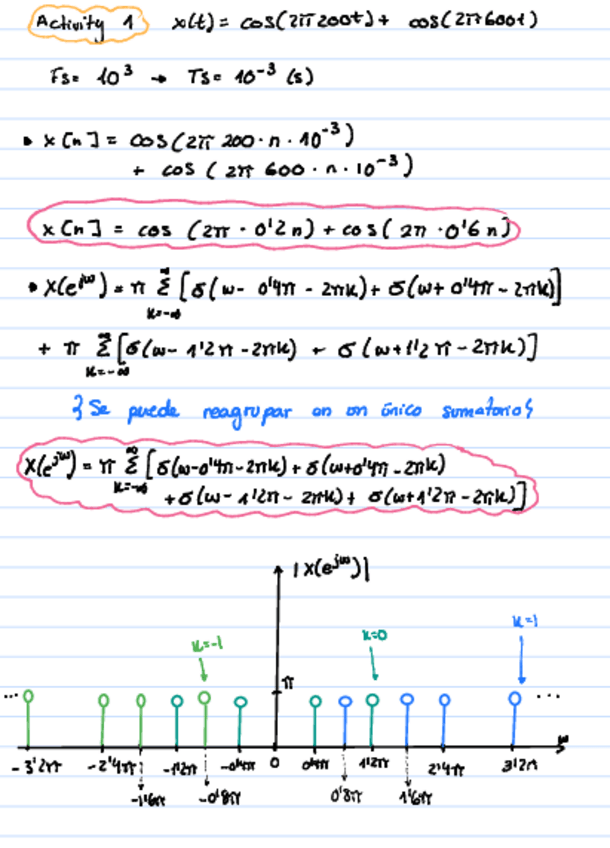 Activity 1 x(t) = cos(2π200t) + cos(2π600t)
Fs = 10³ → Ts = 10⁻³ (s)
• x[n] = cos(2π 200 · n · 10⁻³)
+ cos (2π 600 · n · 10⁻³)
x[n] = cos (2π · 0'2n) + cos(2π · 0'6n)
• X(e^jω) = π Σ_{k=-∞}^{∞} [δ(ω - 0'4π - 2πk) + δ(ω + 0'4π - 2πk)]
+ π Σ_{k=-∞}^{∞} [δ(ω - 1'2π - 2πk) + δ(ω + 1'2π - 2πk)]
{Se puede reagrupar en un único sumatorio}
X(e^jω) = π Σ_{k=-∞}^{∞} [δ(ω-0'4π-2πk) + δ(ω+0'4π-2πk)
+ δ(ω - 1'2π - 2πk) + δ(ω+1'2π-2πk)]
|X(e^jω)|
k=-1 k=0 k=1
π
... ...
-3'2π -2'4π -1'2π -0'4π 0 0'4π 1'2π 2'4π 3'2π ω
-1'6π -0'8π 0'8π 1'6π